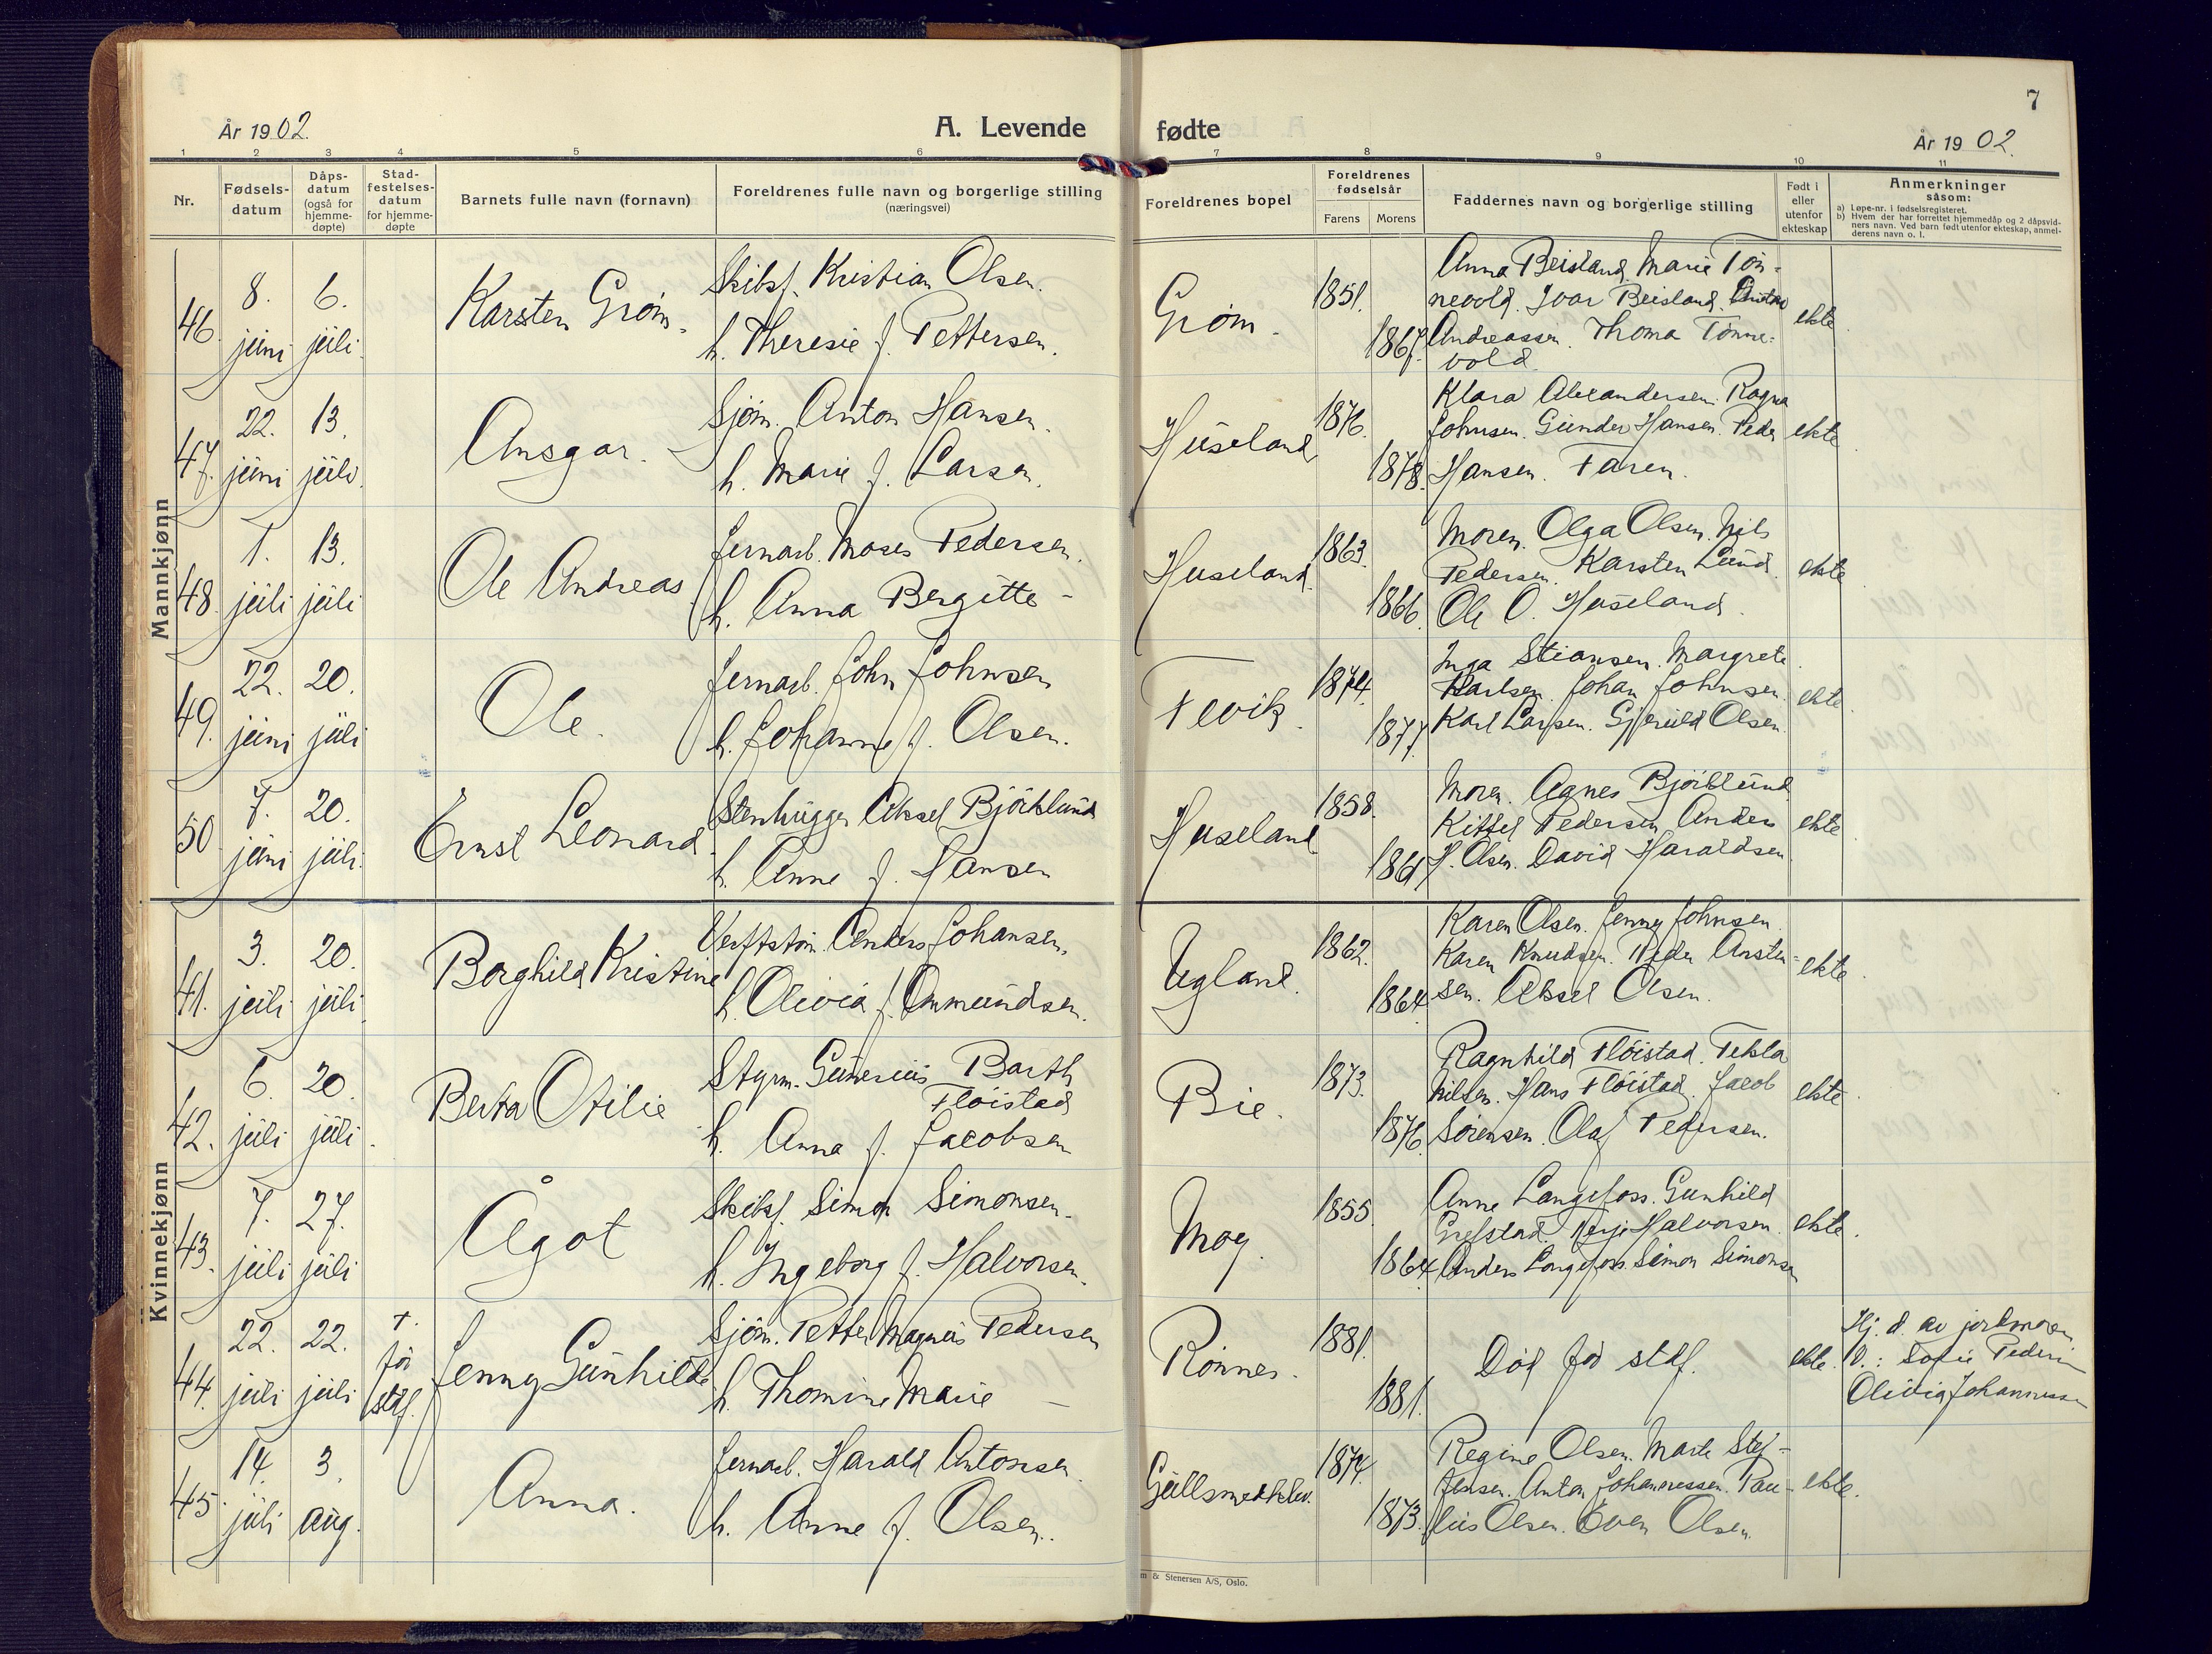 7
År 1902.
A. Levende fødte
År 1902.
1 2 3 4 5 6 7 8 9 10 11
Nr.
Fødsels-
datum
Dåps-
datum
(også for
hjemme-
døpte)
Stad-
festelses-
datum
for hjemme-
døpte
Barnets fulle navn (fornavn)
Foreldrenes fulle navn og borgerlige stilling
(næringsvei)
Foreldrenes bopel
Foreldrenes
fødselsår
Farens Morens
Faddernes navn og borgerlige stilling
Født i
eller
utenfor
ekteskap
Anmerkninger
såsom:
a) Løpe-nr. i fødselsregisteret.
b) Hvem der har forrettet hjemmedåp og 2 dåpsvid-
ners navn. Ved barn født utenfor ekteskap, anmel-
derens navn o. l.
Mannkjønn
46. 8. juni 6. juli Karsten Grøm.
Skibsf. Kristian Olsen.
h. Theresie f. Pettersen.
Grøm. 1851. 1867.
Anna Beisland. Marie Tøn-
nevold. Ivar Beisland. Anton
Andreassen. Thoma Tønne-
vold.
ekte.
47. 22. juni 13. juli. Ansgar.
Sjøm. Anton Hansen.
h. Marie f. Larsen.
Huseland 1876. 1878.
Klara Alexandersen. Ragna
Johnsen. Gunder Hansen. Peder
Hansen. Faren.
ekte.
48. 1. juli 13. juli Ole Andreas
Jernarb. Moses Pedersen.
h. Anna Bergitte -
Huseland. 1863. 1866.
Moren. Olga Olsen. Nils
Pedersen. Karsten Lund.
Ole O. Huseland.
ekte
49. 22. juni 20. juli Ole.
Jernarb. John Johnsen
h. Johanne f. Olsen.
Fevik. 1874. 1877.
Inga Stiansen. Margrete
Karlsen. Johan Johnsen.
Karl Larsen. Gjeruld Olsen.
ekte.
50. 7. juni 20. juli. Ernst Leonard.
Stenhugger Aksel Bjørklund
h. Anne f. Hansen
Huseland. 1858. 1861
Moren. Agnes Bjørklund
Kittel Pedersen. Anders
H. Olsen. David Haraldsen.
ekte
Kvinnekjønn
41. 3. juli 20. juli. Borghild Kristine
Verftstøm. Anders Johansen.
h. Olivia f. Ommundsen.
Ugland. 1862. 1864.
Karen Olsen. Jenny Johnsen.
Karen Knudsen. Peder Aosten-
sen. Aksel Olsen.
ekte.
42. 6. juli 20. juli. Berta Otilie
Styrm. Gunerius Barth
Fløistad
h. Anna f. Jacobsen
Bie. 1873. 1876.
Ragnhild Fløistad. Tekla
Nilsen. Hans Fløistad. Jacob
Sørensen. Olaf Pedersen.
ekte
43. 7. juli 27. juli Ågot
Skibsf. Simon Simonsen.
h. Ingeborg f. Halvorsen.
Moy. 1855. 1864.
Anne Langefoss. Gunhild
Grefstad. Terje Halvorsen.
Anders Langefoss. Simon Simonsen
ekte.
44. 22. juli 22. juli + før stdf. Jenny Gunhilde
Sjøm. Petter Magnus Pedersen
h. Thomine Marie -
Rønnes. 1881. 1881.
Død før stdf.
ekte.
Hj. d. av jordmoren
V.: Sofie Pedersen
Olivia Johannessen
45. 14. juli 3. aug. Anna.
Jernarb. Harald Antonsen.
h. Anne f. Olsen.
Gullsmedklev. 1874. 1873.
Regine Olsen. Marte Stef-
fensen. Anton Johannessen. Pau-
lus Olsen. Even Olsen.
ekte.
m & Stenersen A/S, Oslo.